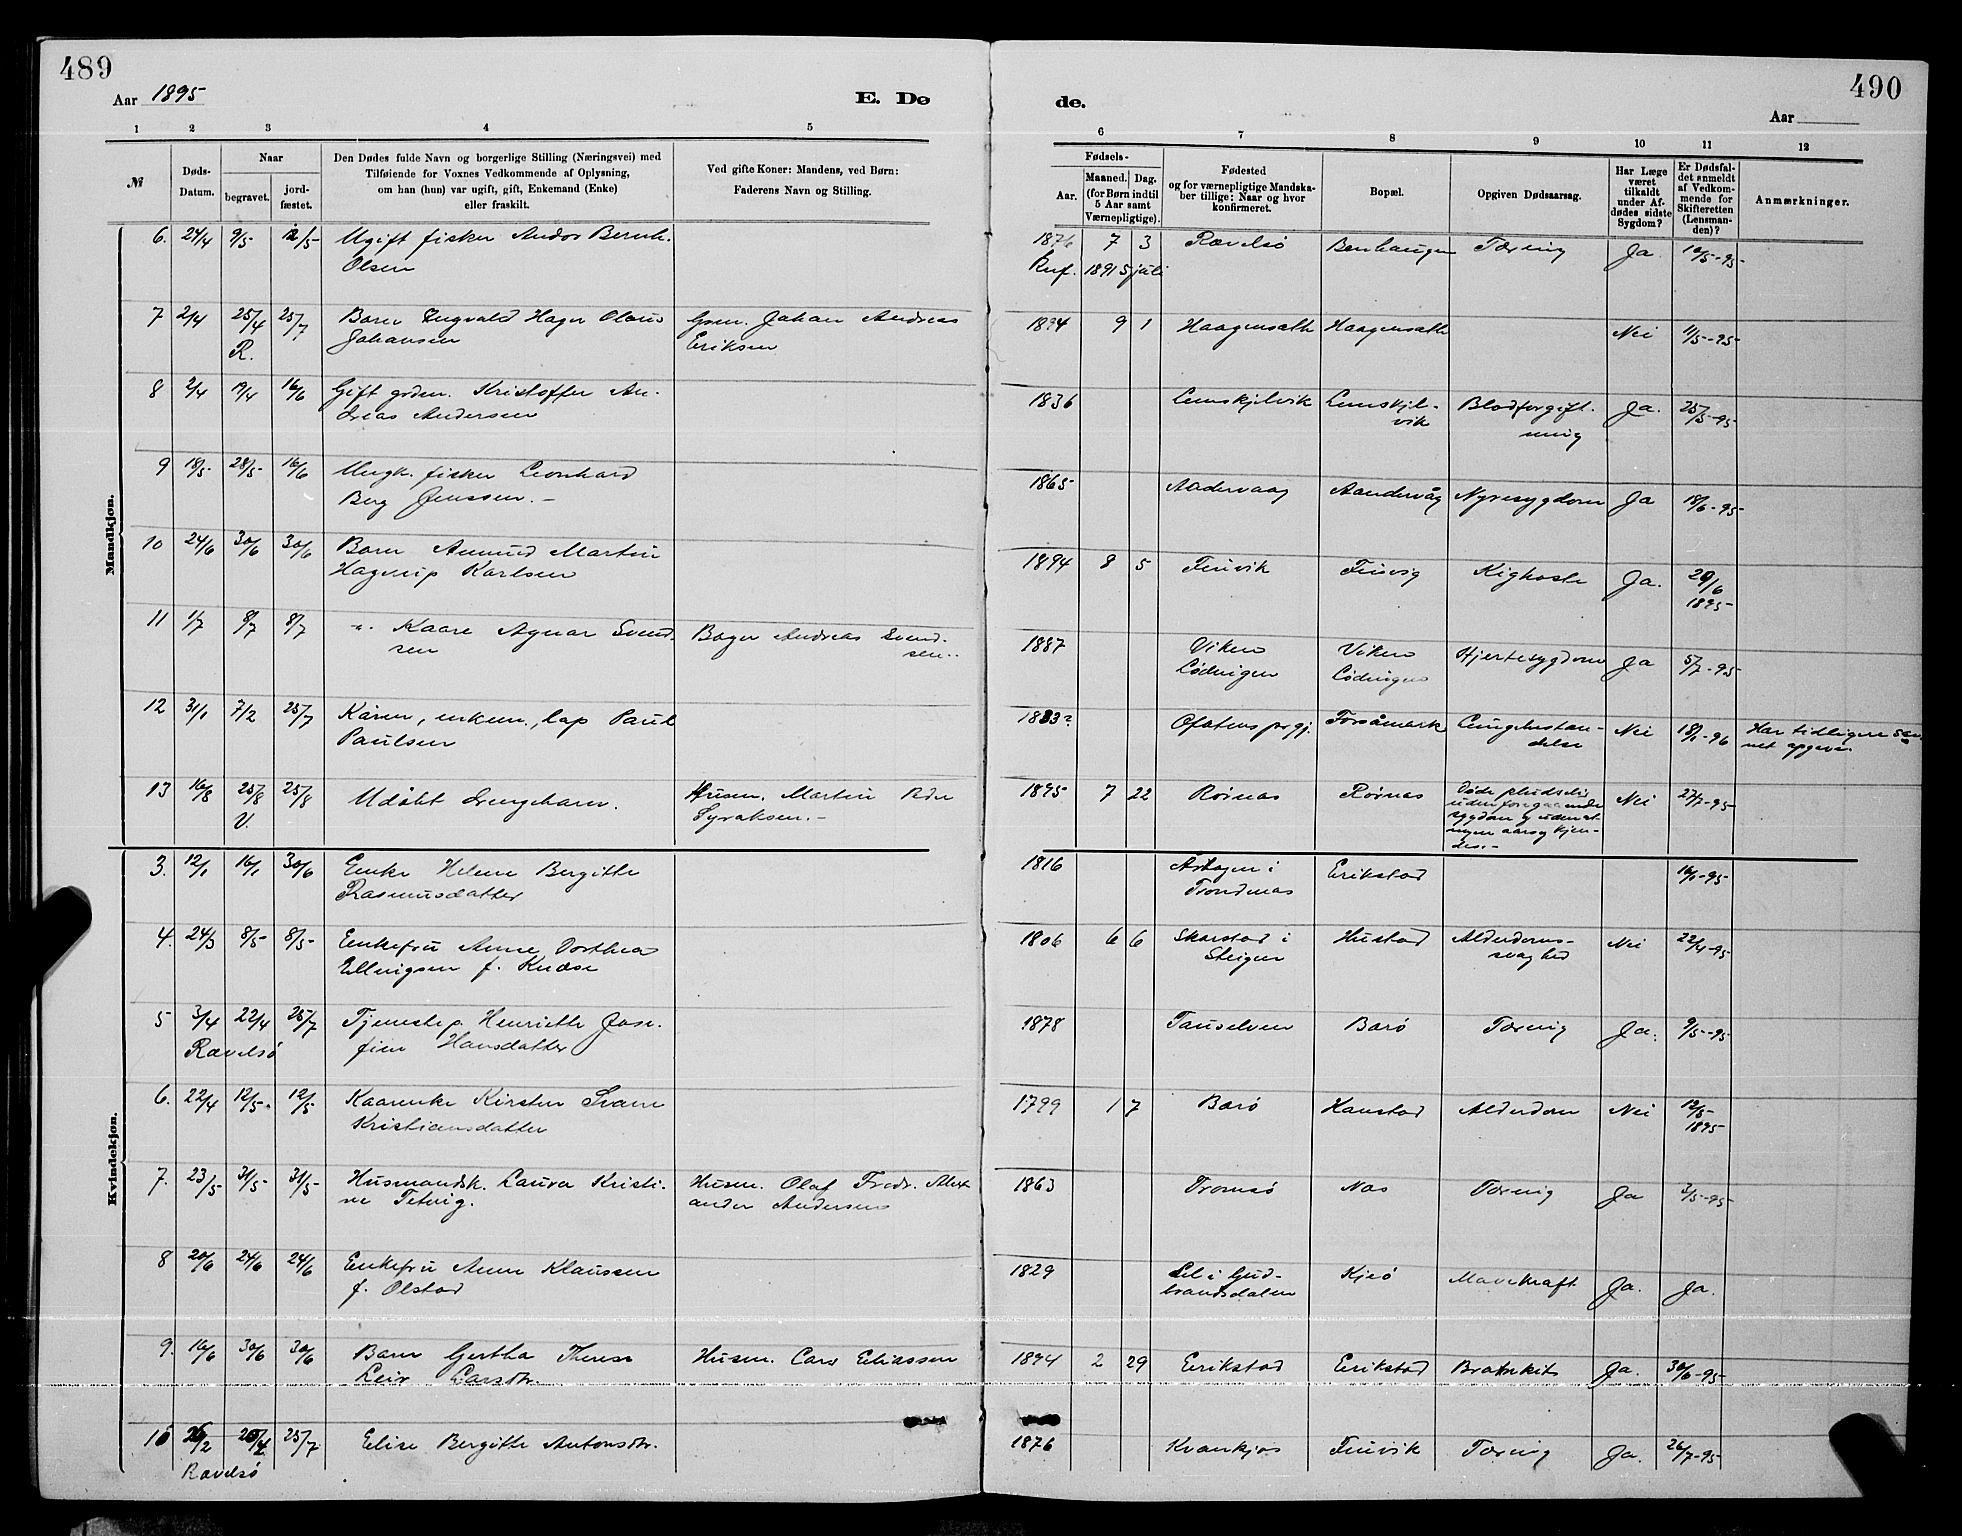 489
490
Aar 1895
E. Dø
de.
Aar
1 2 3 4 5 6 7 8 9 10 11 12
№
Døds-
Datum.
Naar
begravet.
jord-
fæstet.
Den Dødes fulde Navn og borgerlige Stilling (Næringsvei) med
Tilføiende for Voxnes Vedkommende af Oplysning,
om han (hun) var ugift, gift, Enkemand (Enke)
eller fraskilt.
Ved gifte Koner: Mandens, ved Børn:
Faderens Navn og Stilling.
Fødsels-
Aar.
Maaned. Dag.
(for Børn indtil
5 Aar samt
Værnepligtige).
Fødested
og for værnepligtige Mandska-
ber tillige: Naar og hvor
konfirmeret.
Bopæl.
Opgiven Dødsaarsag.
Har Læge
været
tilkaldt
under Af-
dødes sidste
Sygdom?
Er Dødsfal-
det anmeldt
af Vedkom-
mende for
Skifteretten
(Lensman-
den)?
Anmærkninger.
Mandkjøn.
6. 24/4 9/5 12/5 Ugift fisker Andor Bernh. 1876 7 3 Rævelsö Tæring Ja
Olsen 1891 5 juli
7 2/4 25/4 25/7 Barn Ingvald Hager Olaus Gmn. Johan Andreas 1894 9 1 Haagensæth Haagensæth Nei 11/5-95
R. Johansen Eriksen
8 2/4 19/4 16/6 Gift grdm. Kristoffer An- 1836 Blodforgift- Ja. 25/5-95
dreas Andersen vik ning
9 18/5 28/5 16/6 Ungk. fisker Leonhard 1865 Aandervåg Nyresygdom Ja 18/6-95
Berg Jenssen.-
10 24/6 30/6 30/6 Barn Amund Martin 1894 8 5 Finvik Finvig Kighoste Ja. 29/6
Hagerup Karlsen 1895
11 1/7 8/7 8/7 -"- Kaare Agnar Svend- Bager Andreas Svend- 1887 Viken Viken Hjertesygdom Ja 5/7-95
sen sen.. Lødingen Lødingen
12 31/1 7/2 25/7 Kåren, enkem., lap Paul Ofotens prgj. Forsåmark Lungebetæn- Nei 18/1-96 Har tidligere
Paulsen delse net opgaven
13 16/8 25/8 25/8 Udöbt drengebarn. Husm. Martin Peder 1895 7 22 Rörnæs Rörnæs Döde pludselig Nei 27/7-95
V. Syraksen.- uden foregaaende
sygdom
Kvindekjøn.
3. 12/1 16/1 30/6 Enke Helene Bergitte 1816 Erikstad 16/1-95
Rasmusdatter Trondenæs
4. 24/3 8/5 8/5 Enkefru Anne Dorthea 1806 6 6 Skarstad i Hustad Alderdoms- Nei 22/4-95
Ellingsen f. Steigen svaghed
5 3/4 22/4 25/7 Tjenestep. Henriette Jose- 1878 Barö Tæring Ja. 9/5-95
Rævelsö fine Hansdatter
6. 22/4 12/5 12/5 Kaarenke Kirsten 1799 1 7 Barö Hanstad Alderdom Nei 12/5
Kristiansdatter 1895
7. 23/5 31/5 31/5 Husmandsk. Laura Kristi- Husm. Olaf Fredr. Alex- 1863 Tromsö Næs Tæring Ja 3/5-95
ne ander Andersen
8 20/6 24/6 24/6 Enkefru Anne Klaussen 1829 i Gud- Kjeö Mavekræft Ja. Ja.
f. Olstad brandsdalen
9. 16/6 30/6 30/6 Barn Gertha Therese Husm. Eliassen 1894 2 29 Erikstad Erikstad Ja. 30/6-95
Larsdtr.
10 26/2 25/7 Elise Bergitte Antonsdtr. 1876 Kvankjos Finvik Tæring Ja. 26/7-95
Rævelsö